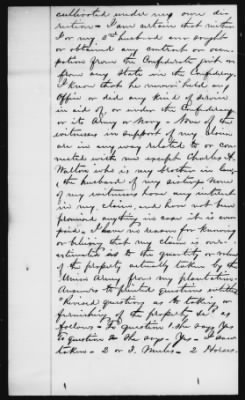 cultivated under my own di-
rection - I am certain that neither
I or my 2nd husband ever sought
or obtained any contract or occu-
pation from the Confederate Govt or
from any State in the Confederacy.
I know that he never held any
Office or did any kind of service
in aid of or under the Confederacy
or its Army or Navy - None of the
witnesses in support of my claim
are in any way related to or con-
nected with me except Charles A.
Walton who is my brother in law
the husband of my sister. None
of my witnesses have any interest
in my claim, and have not been
promised anything in case it is ever
paid. I have no reason for knowing
or believing that my claim is over-
estimated as to the quantity or value
of the property actually taken by the
Union Army from my plantation.
Answers to printed questions entitled
"Revised questions as to taking or
furnishing of the property &c" as
follows - To question 1. she says Yes
To question 2 she says. Yes - I saw
taken - 2 or 3. Mules - 2 Horses.